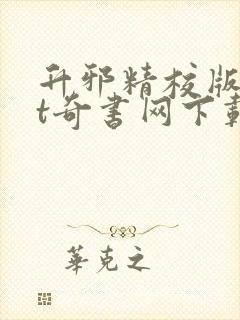 升邪精校版
t奇书网下载
華克之